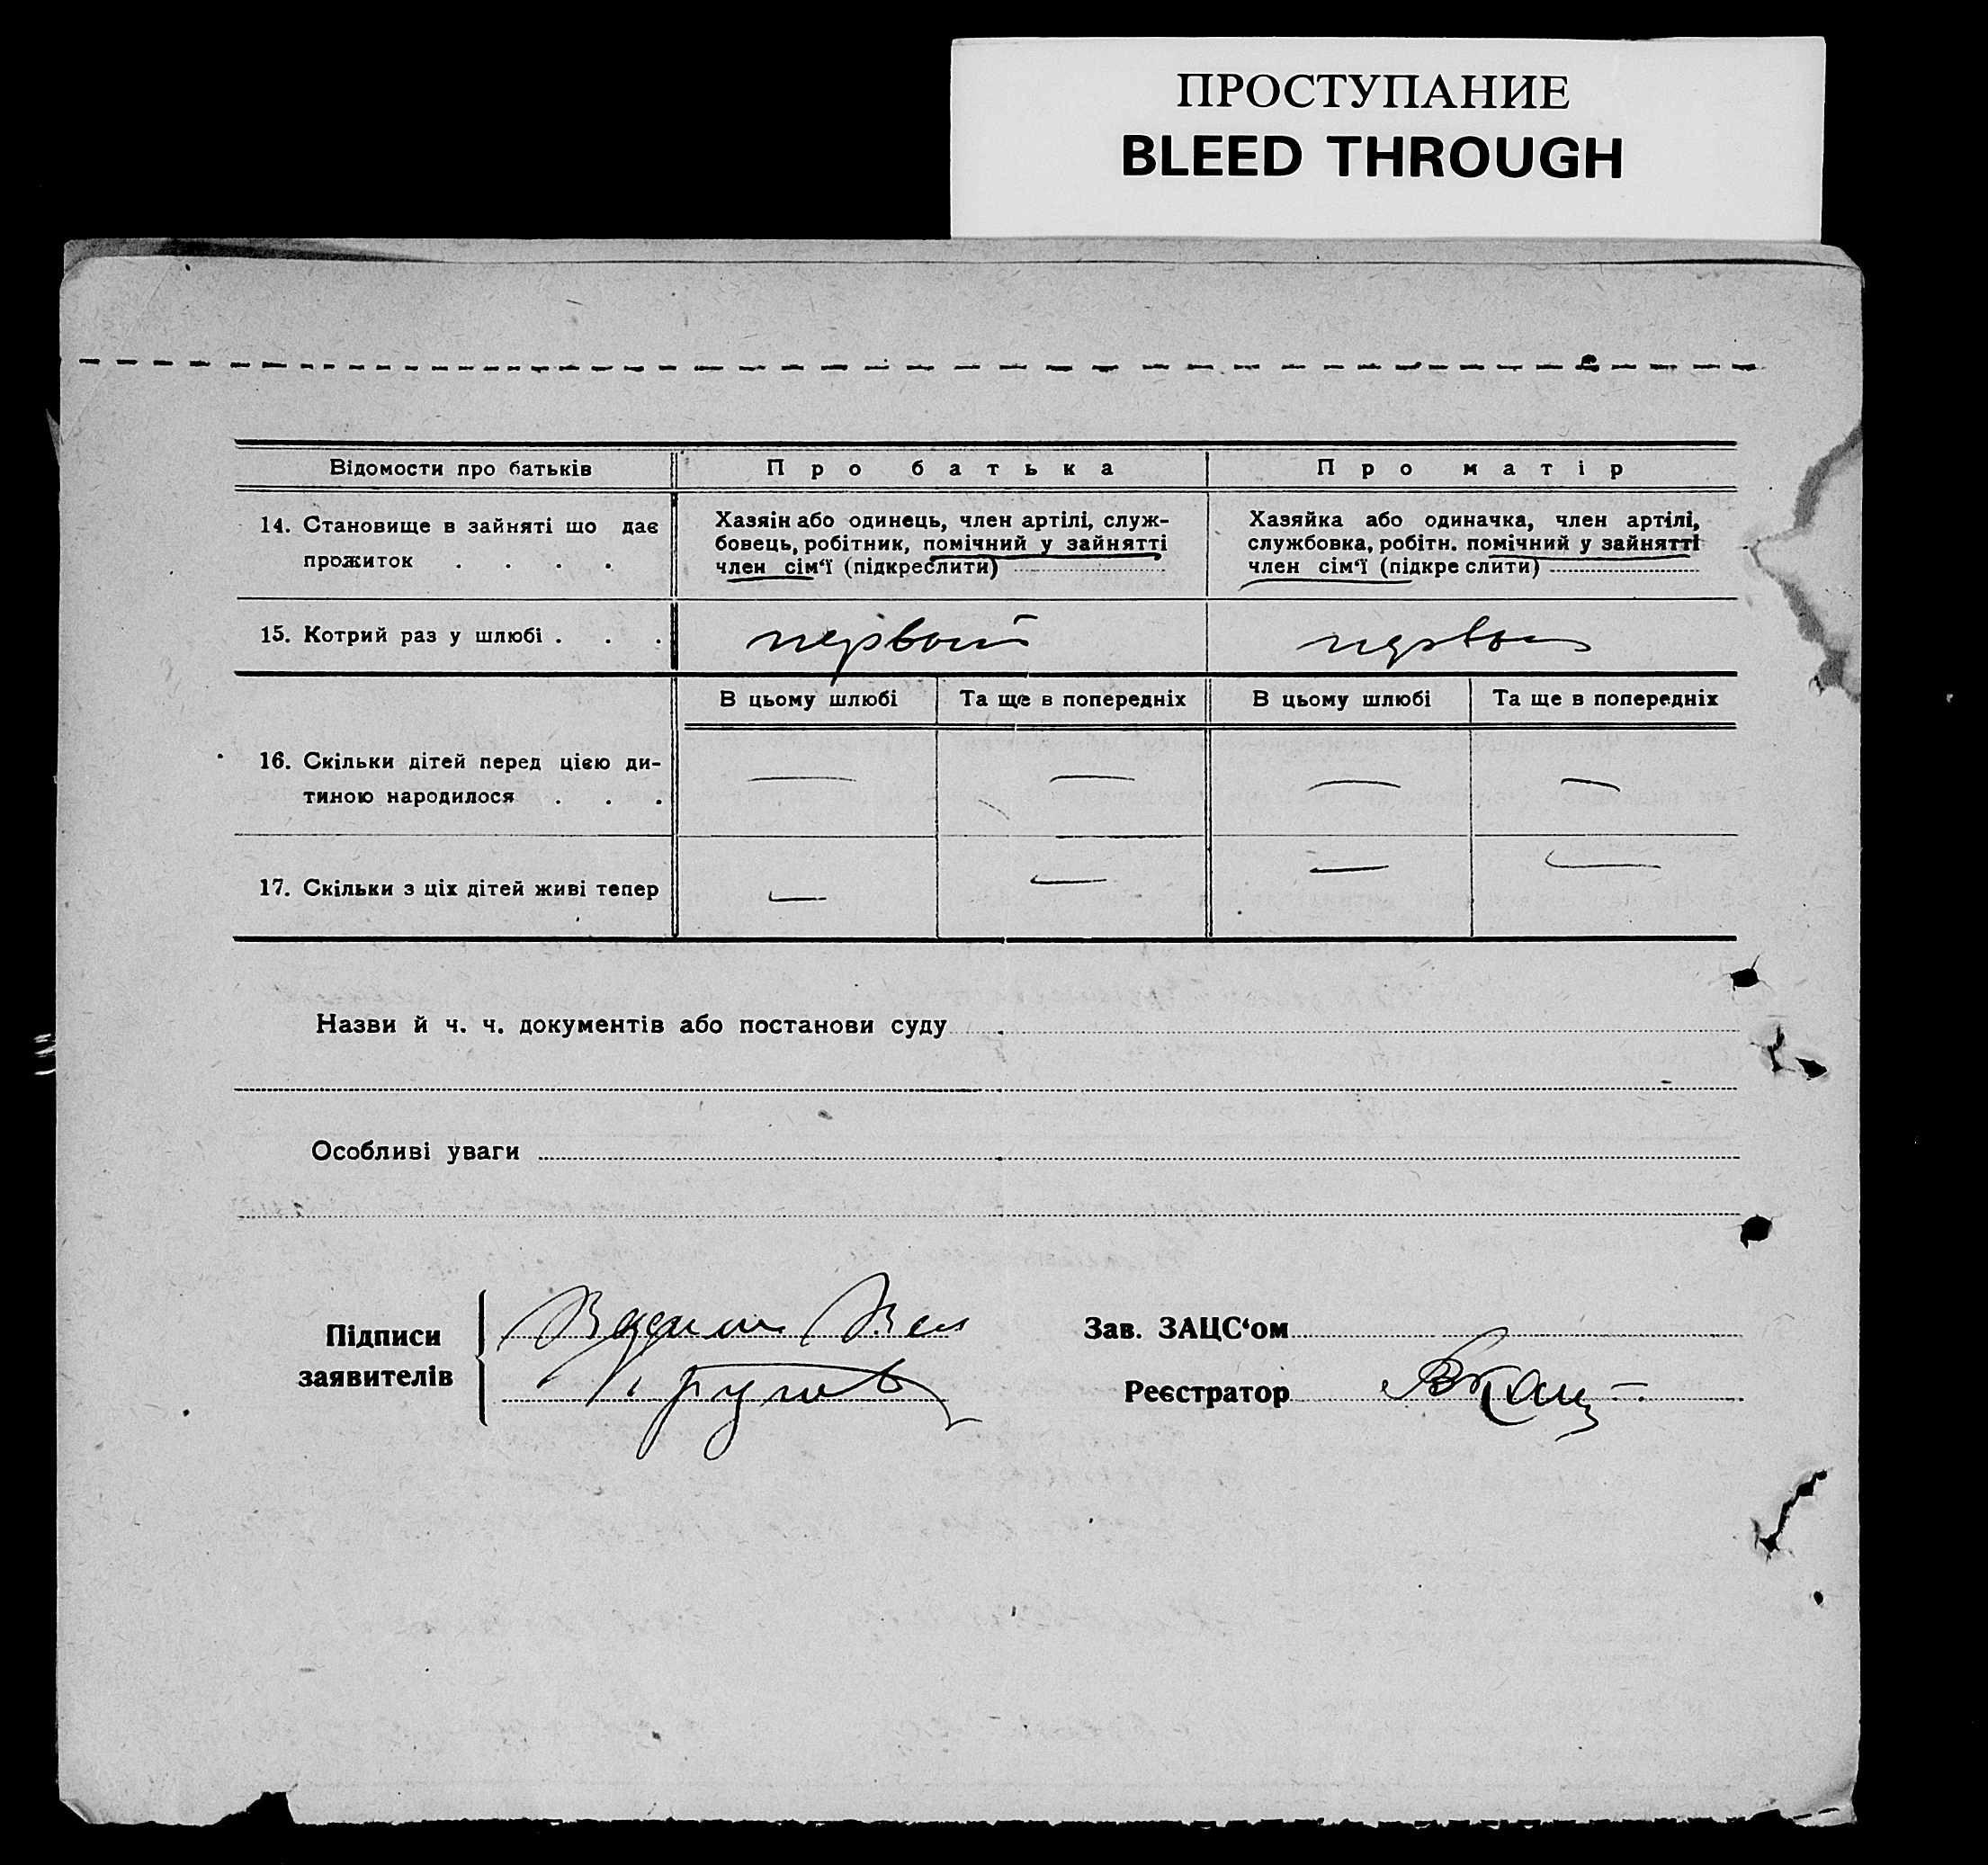 ПРОСТУПАНИЕ
BLEED THROUGH
Відомости про батьків
Про батька
Про матір
14. Становище в зайняті що дає
прожиток . . . .
Хазяін або одинець, член артілі, служ-
бовець, робітник, помічний у зайнятті
член сім‘ї (підкреслити)
Хазяйка або одиначка, член артілі,
службовка, робітн. помічний у зайнятті
член сім‘ї (підкре слити)
15. Котрий раз у шлюбі . . .
первый
В цьому шлюбі
Та ще в попередніх
В цьому шлюбі
Та ще в попередніх
16. Скільки дітей перед цією ди-
тиною народилося . . .
— — — —
17. Скільки з ціх дітей живі тепер
— — — —
Назви й ч. ч. документів або постанови суду
Особливі уваги
Підписи
заявителів
Зав. ЗАЦС‘ом
Реєстратор